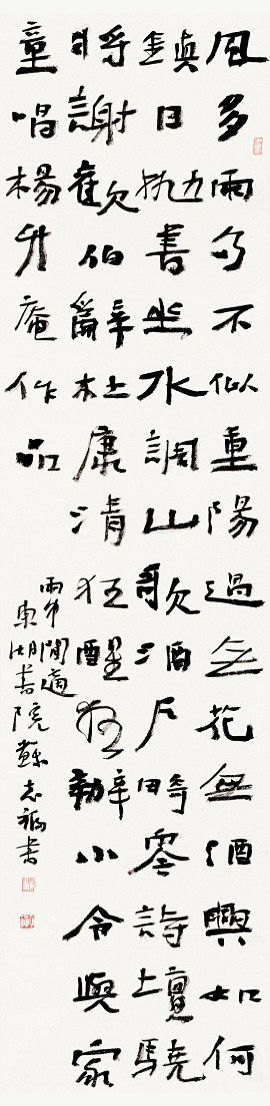 風多雨多不似重陽過無花無酒興如何
鎮日執書坐水調山歌酒戶時零詩壇驍
將謝歡伯爵辭杜康清狂醒勤小令與家
童唱楊升庵作品
雨中閒適
東湖書院蘇志書